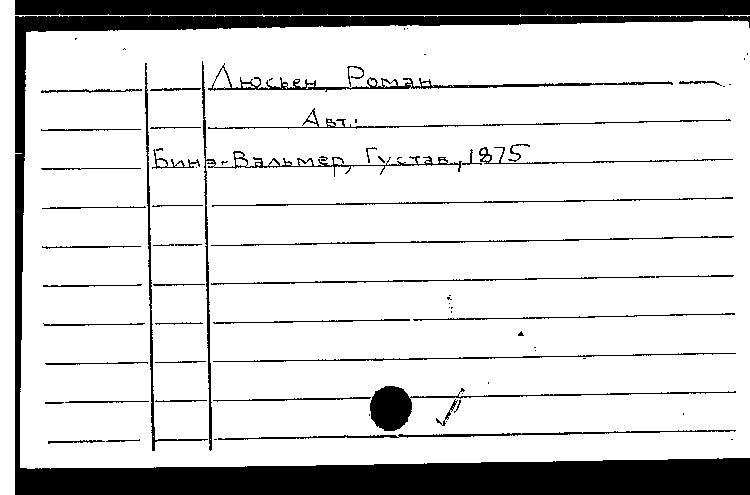 Люсьен, Роман
Авт.:
Бинэ-Вальмер, Густав, 1875